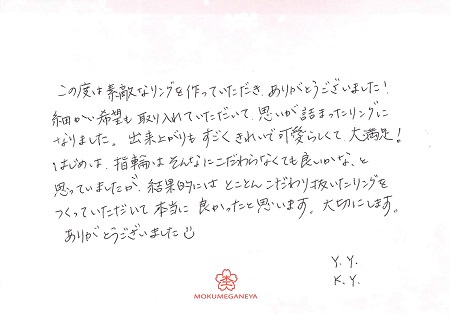 この度は素敵なリングを作っていただき、ありがとうございました!
細かい希望も取り入れていただいて、思いが詰まったリングに
なりました。出来上がりもすごくきれいで可愛らしくて、大満足!
はじめは、指輪はそんなにこだわらなくても良いかな、と
思っていましたが、結果的にはとことんこだわり抜いたリングを
つくっていただいて本当に良かったと思います。大切にします。
ありがとうございました
Y. Y.
K. Y.
MOKUMEGANEYA